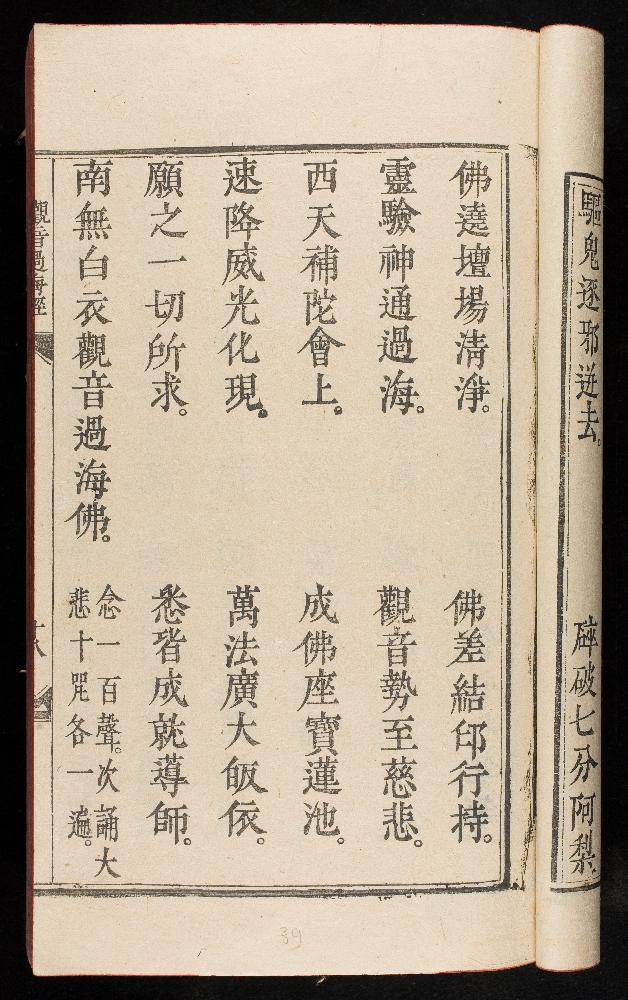 驅鬼逐邪迸去。 碎破七分阿梨
佛遶壇場清淨。 佛差結印行持。
靈驗神通過海。 觀音勢至慈悲。
西天補陀會上。 成佛座寶蓮池。
速降威光化現。 萬法廣大皈依。
願之一切所求。 悉皆成就導師。
南無白衣觀音過海佛。 念一百聲。次誦大
悲十咒各一遍。
觀音過海經
十八
39